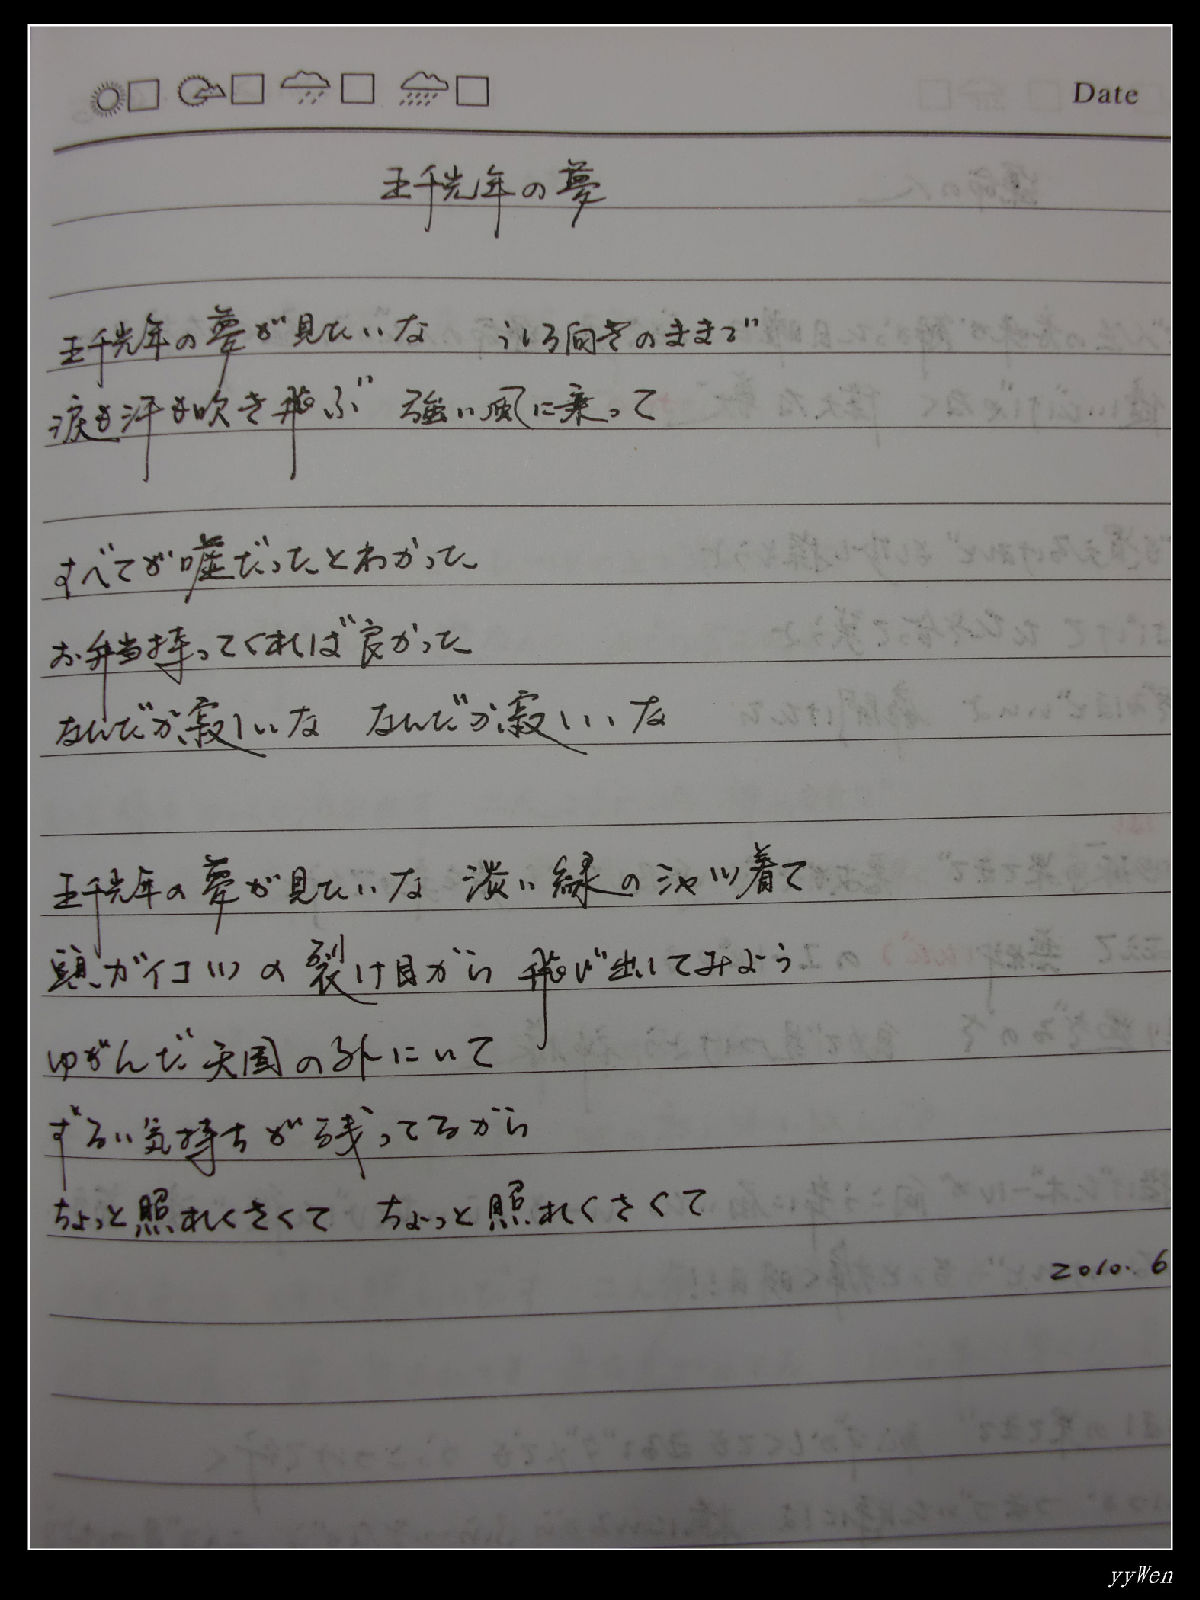 Date
五千光年の夢
五千光年の夢が見たいな うしろ向きのままで
涙も汗も吹き飛ぶ 強い風に乗って
すべてが嘘だったとわかった
お弁当持ってくれば良かった
なんだか寂しいな なんだか寂しいな
五千光年の夢が見たいな 淡い緑のシャツ着て
頭ガイコツの裂け目から 飛び出してみよう
ゆがんだ天国の外にいて
ずるい気持ちが残ってるから
ちょっと照れくさくて ちょっと照れくさくて
2010.6
yyWen